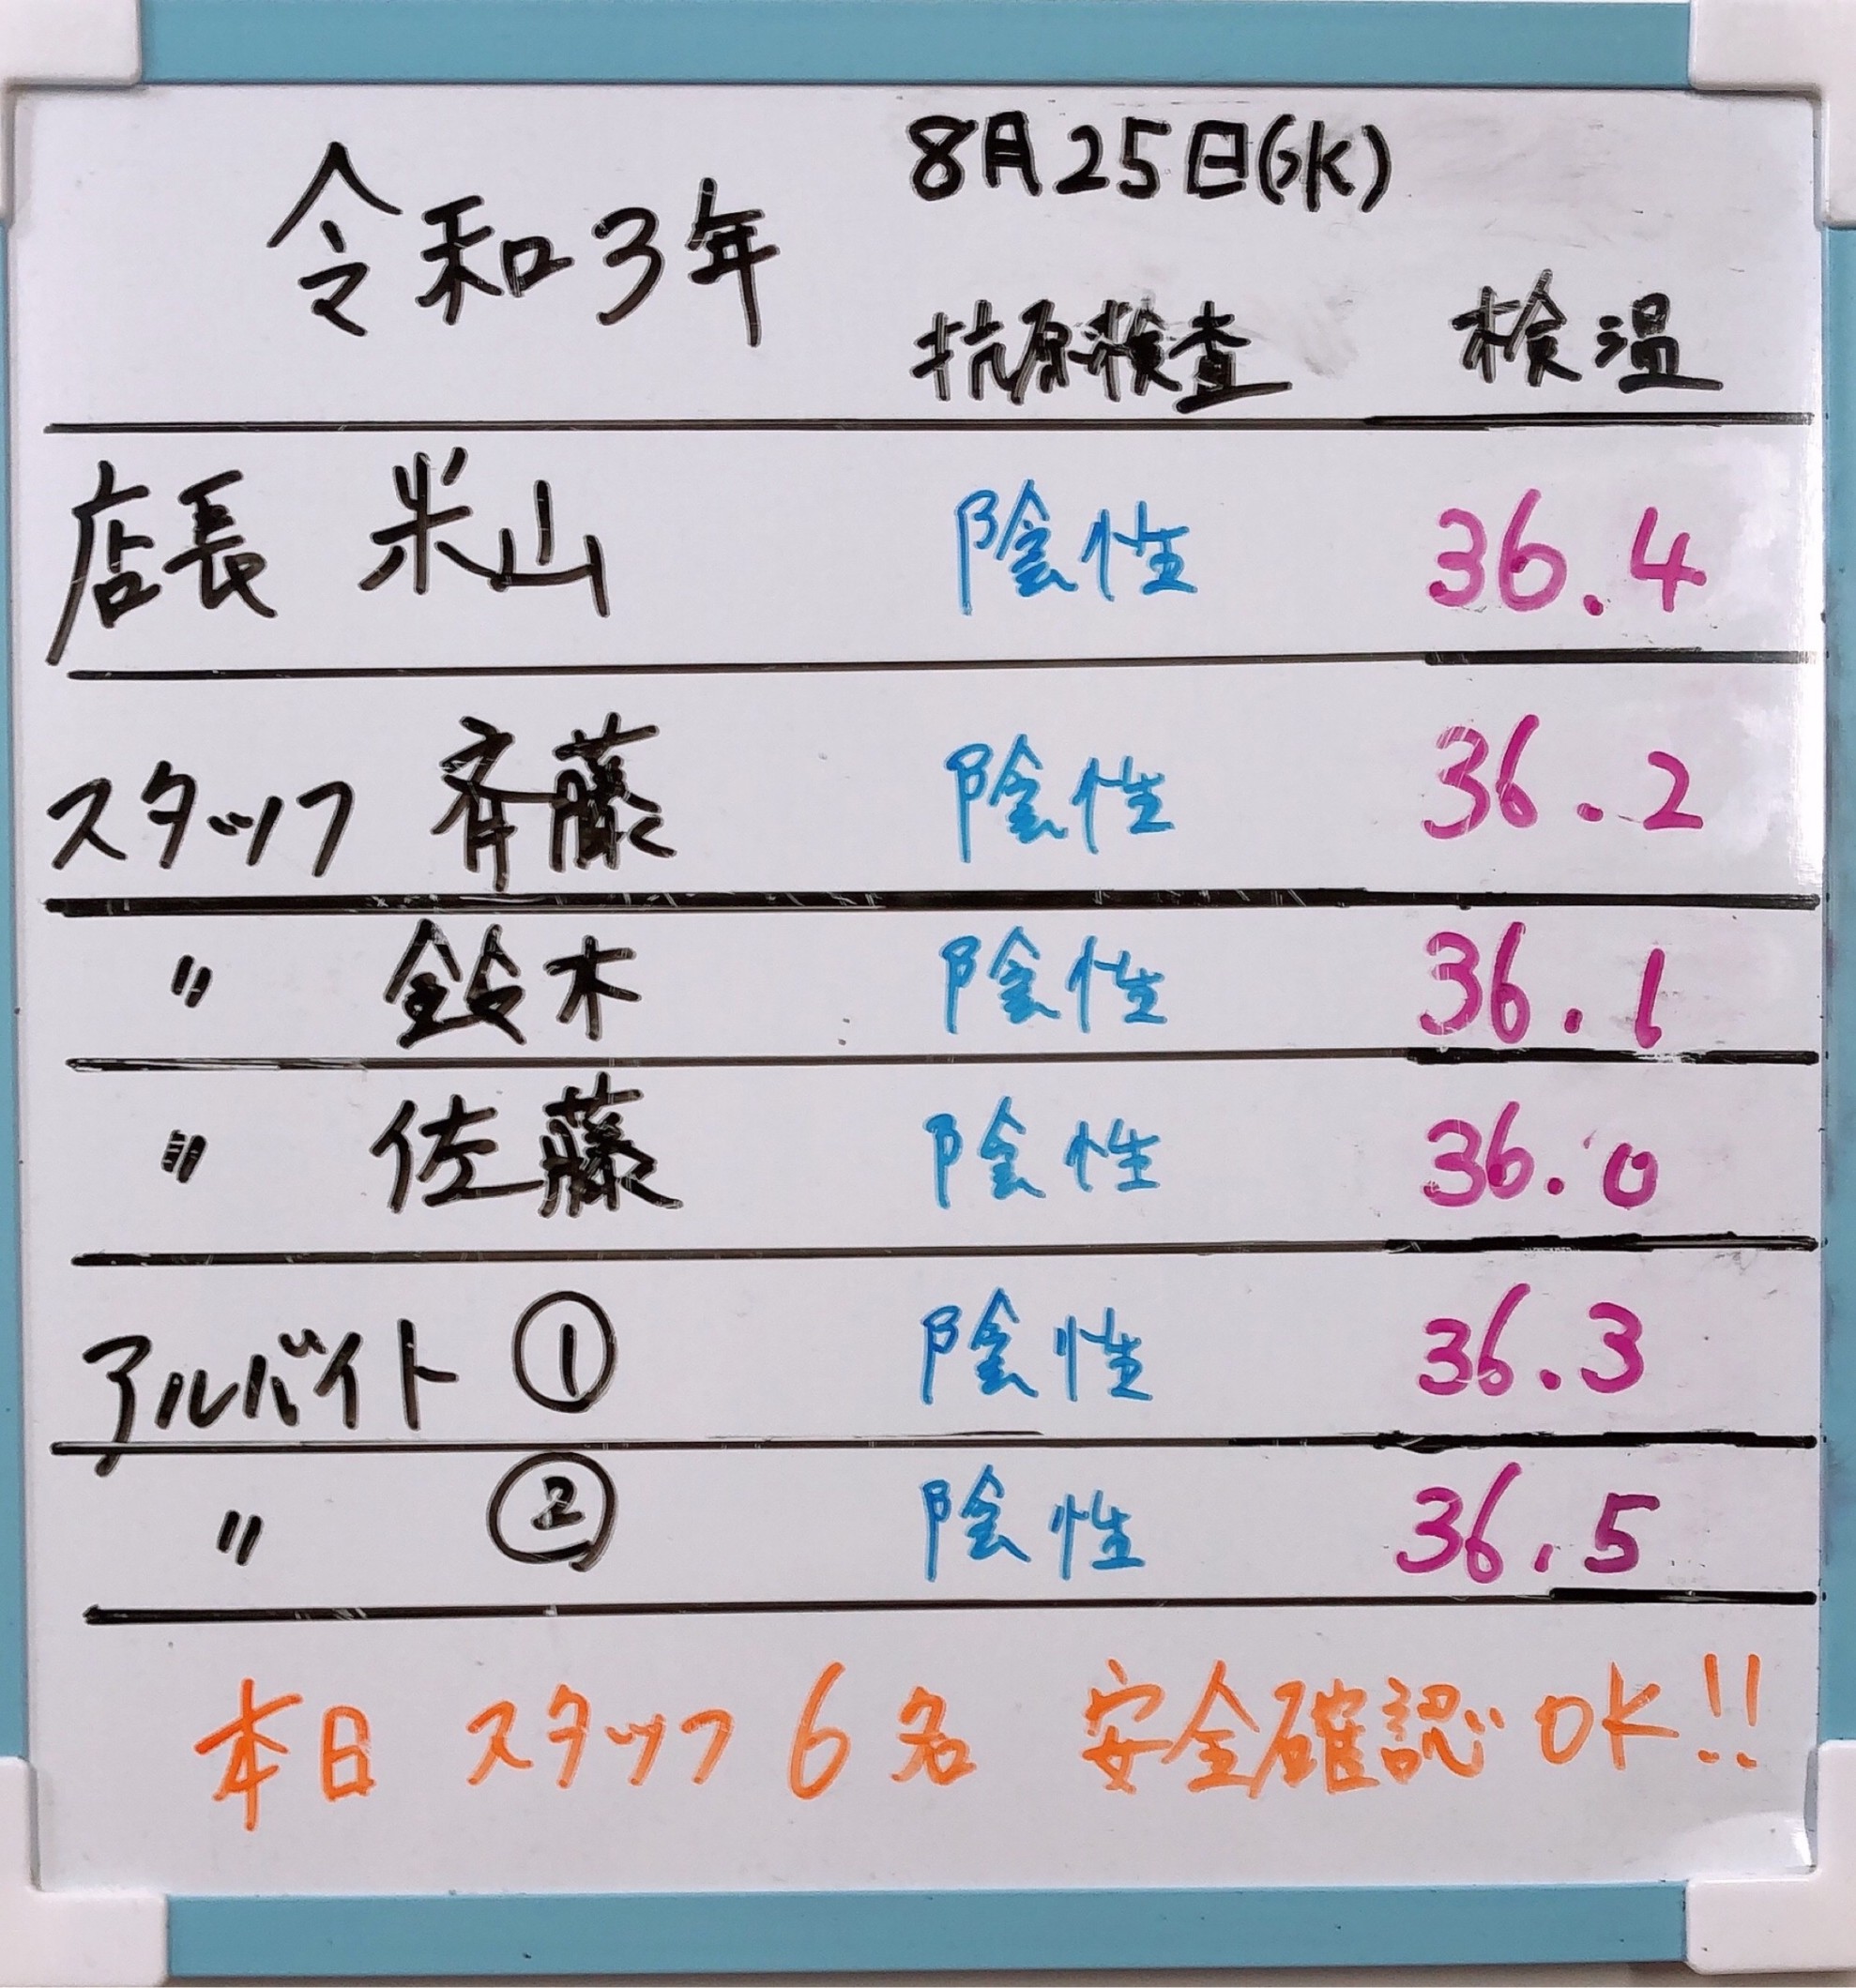 令和3年 8月25日(水)
抗原検査 検温
店長 米山 陰性 36.4
スタッフ 斉藤 陰性 36.2
〃 鈴木 陰性 36.1
〃 佐藤 陰性 36.0
アルバイト ① 陰性 36.3
〃 ② 陰性 36.5
本日 スタッフ 6名 安全確認OK!!